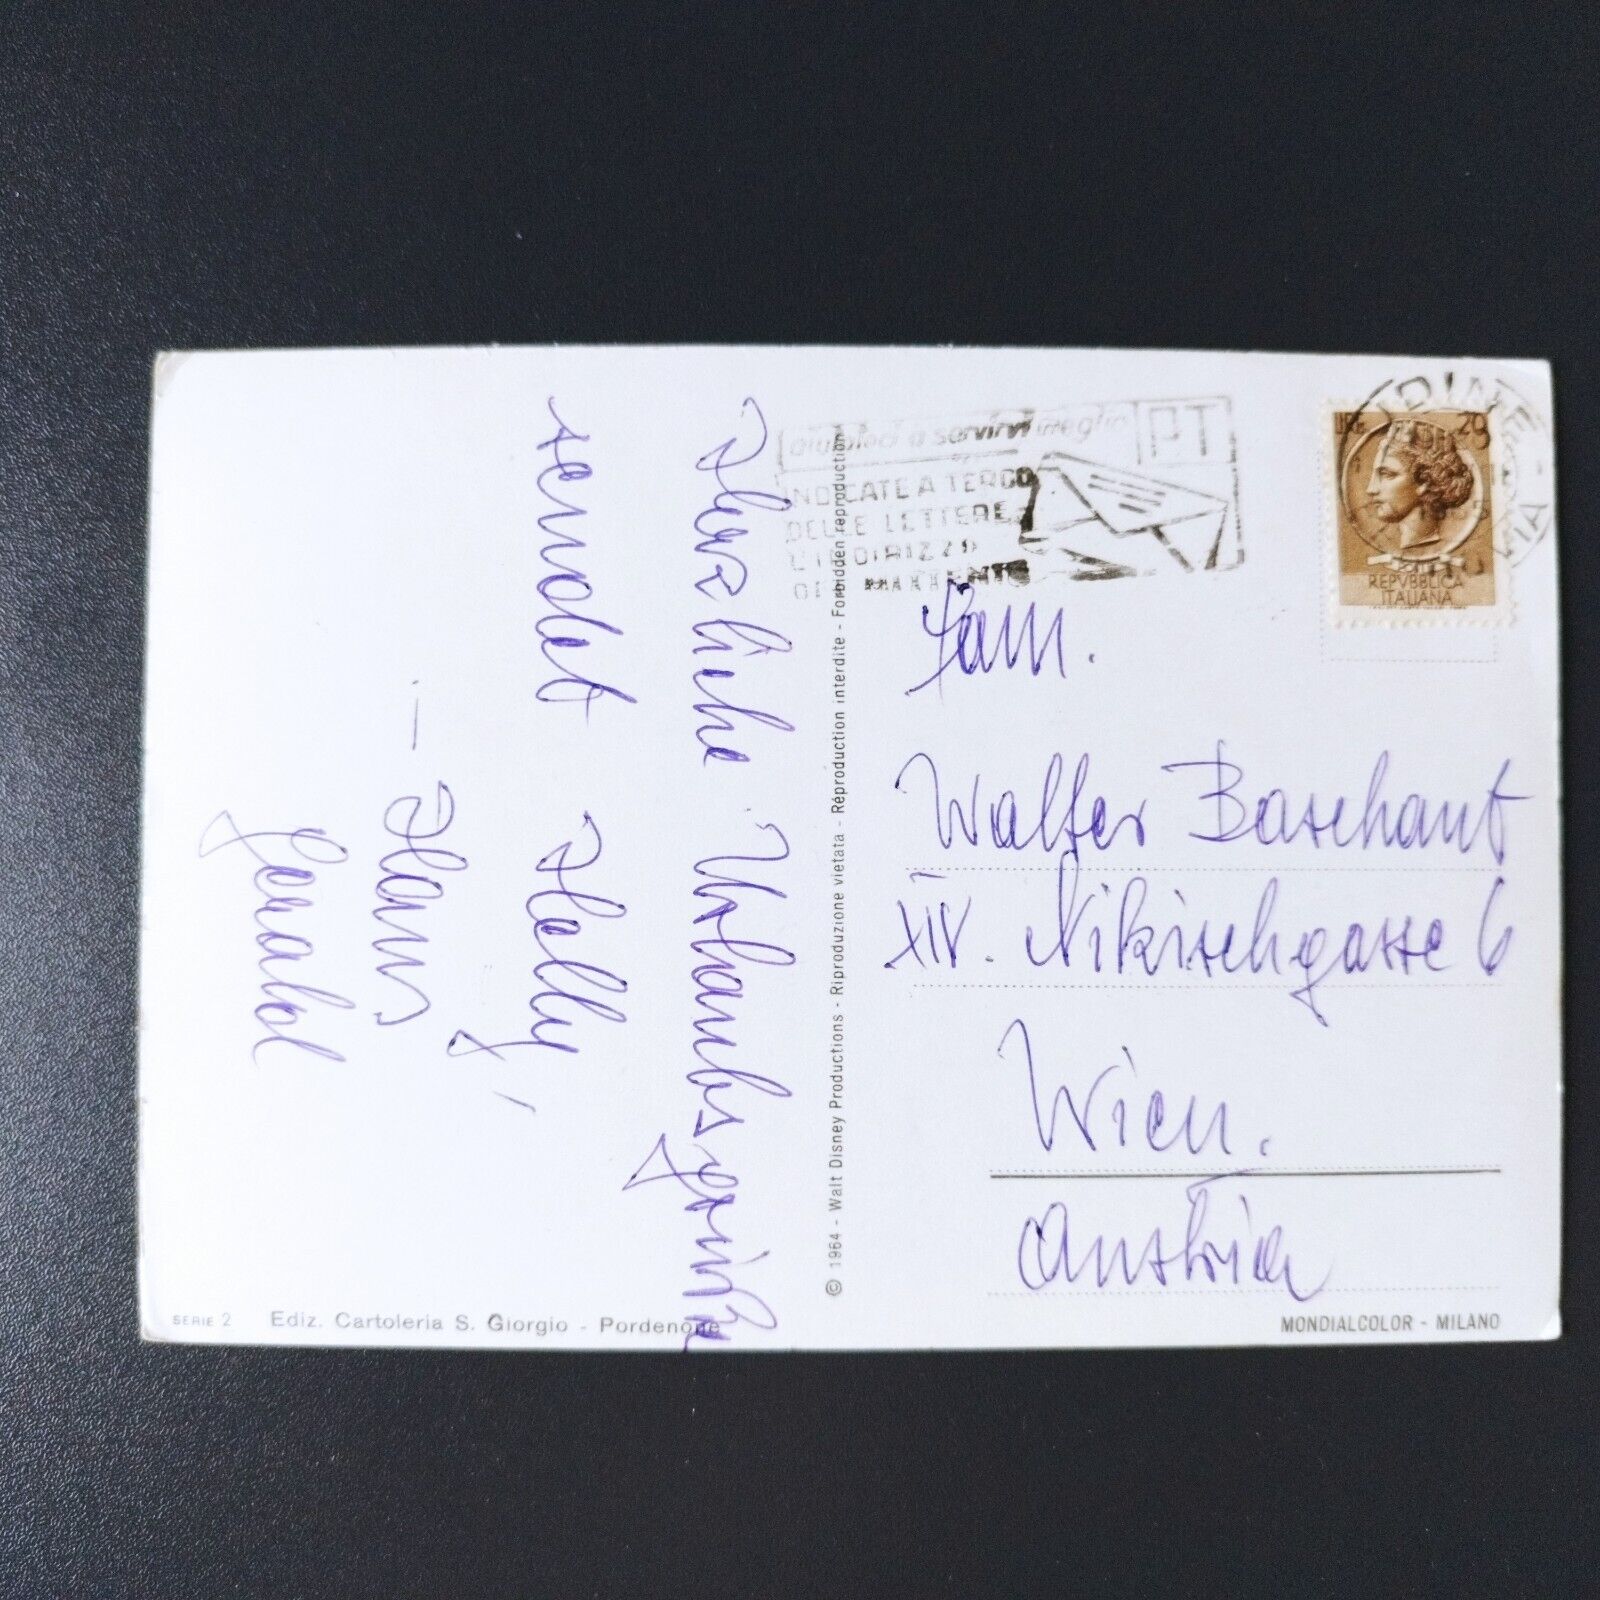 Herzliche Urlaubsgrüße
sendet Helly,
- Hans,
Gerald
© 1964 - Walt Disney Productions - Riproduzione vietata - Réproduction interdite - Forbidden reproduction
aiutateci a servirvi meglio
PT
INDICATE A TERGO
DELLE LETTERE
L'INDIRIZZO
DEL MITTENTE
LIRE 20
REPVBBLICA
ITALIANA
Fam.
Walter Baschant
XIV. Nikischgasse 6
Wien.
Austria
SERIE 2 Ediz. Cartoleria S. Giorgio - Pordenone
MONDIALCOLOR - MILANO